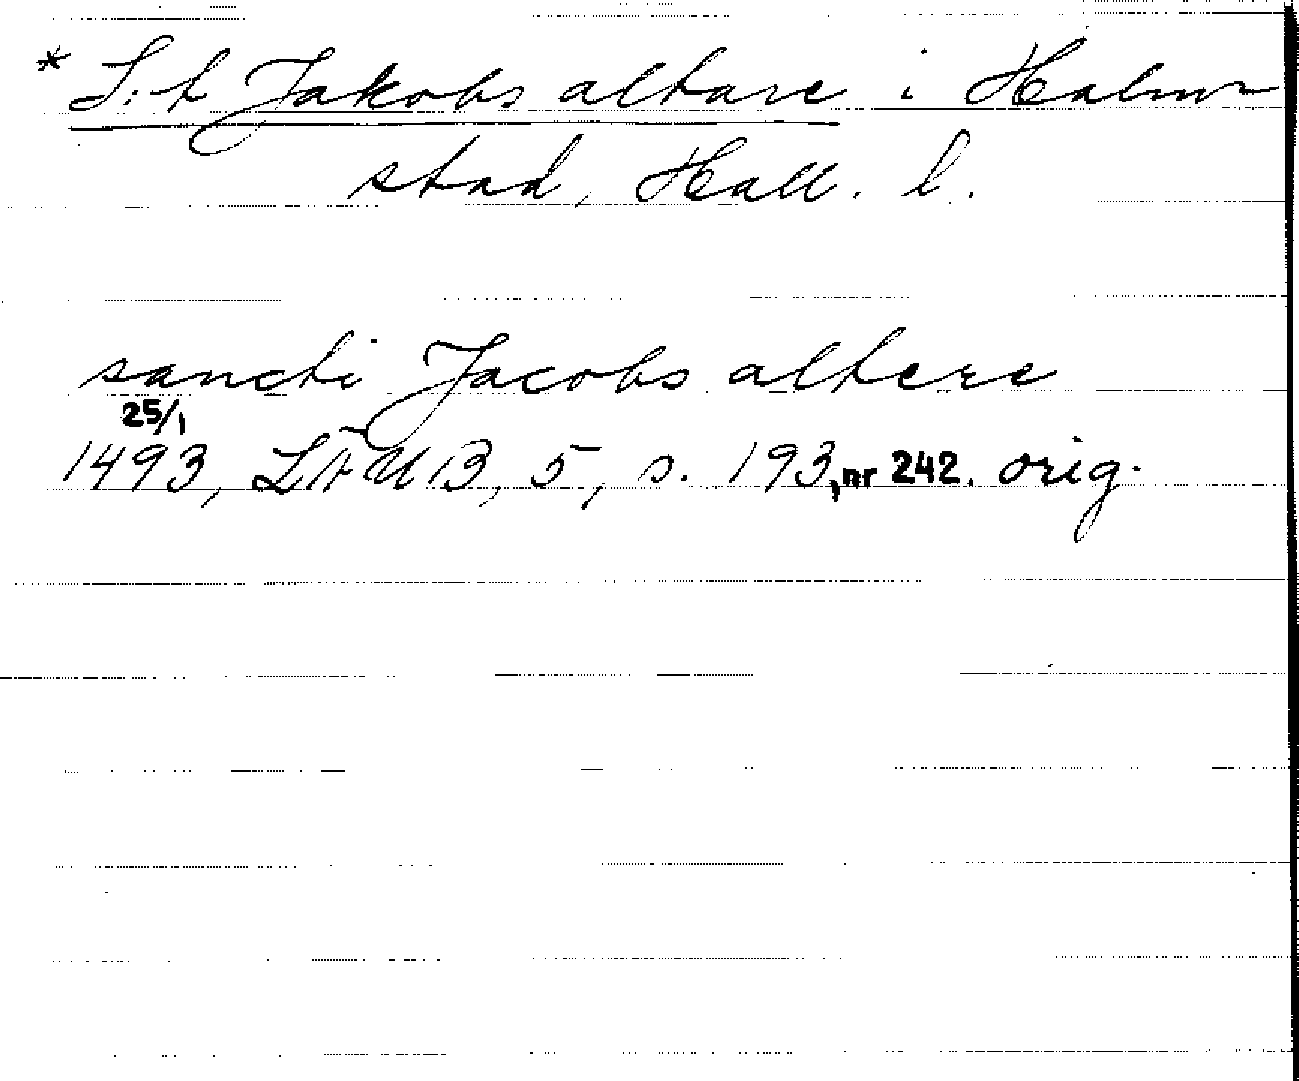 * S:t Jakobs altare i Halm
stad, Hall. l.
sancti Jacobs altere
25/1
1493, LÄUB, 5, s. 193, nr 242. orig.